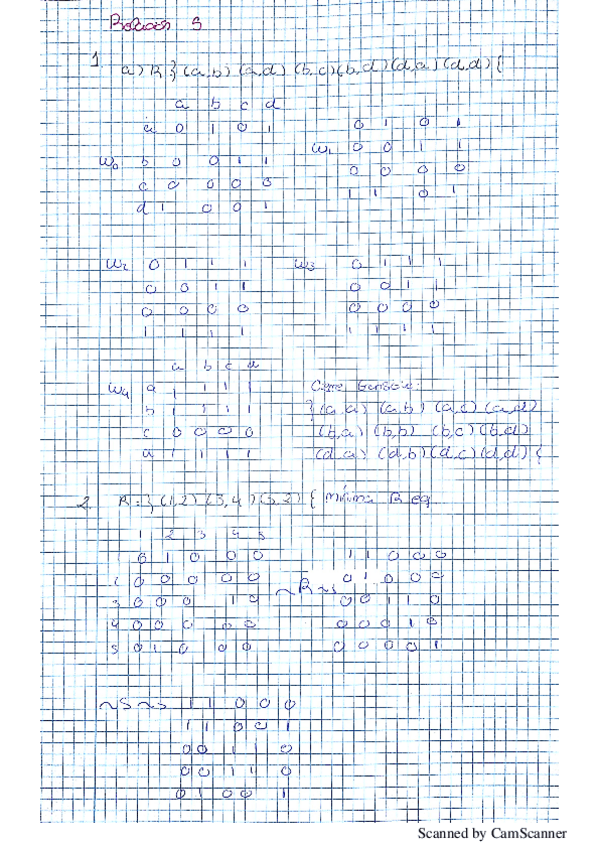 Relación 3
1
a) R } (a,b) (a,d) (b,c) (b,d) (d,a) (d,d) {
a b c d
a 0 1 0 1 0 1 0 1
W0 b 0 0 1 1 W1 0 0 1 1
c 0 0 0 0 0 0 0 0
d 1 0 0 1 1 1 0 1
W2 0 1 1 1 W3 0 1 1 1
0 0 1 1 0 0 1 1
0 0 0 0 0 0 0 0
1 1 1 1 1 1 1 1
a b c d
W4 a 1 1 1 1
b 1 1 1 1
c 0 0 0 0
d 1 1 1 1
} (a,a) (a,b) (a,c) (a,d)
(b,a) (b,b) (b,c) (b,d)
(d,a) (d,b) (d,c) (d,d) {
2. R = } (1,2) (3,4) (5,2) { mínima R eq
1 2 3 4 5
0 1 0 0 0 1 1 0 0 0
0 0 0 0 0 ~R~s 0 1 0 0 0
3 0 0 0 1 0 0 0 1 1 0
4 0 0 0 0 0 0 0 0 1 0
5 0 1 0 0 0 0 0 0 0 1
~s~s 1 1 0 0 0
1 1 0 0 1
0 0 1 1 0
0 0 1 1 0
0 1 0 0 1
Scanned by CamScanner